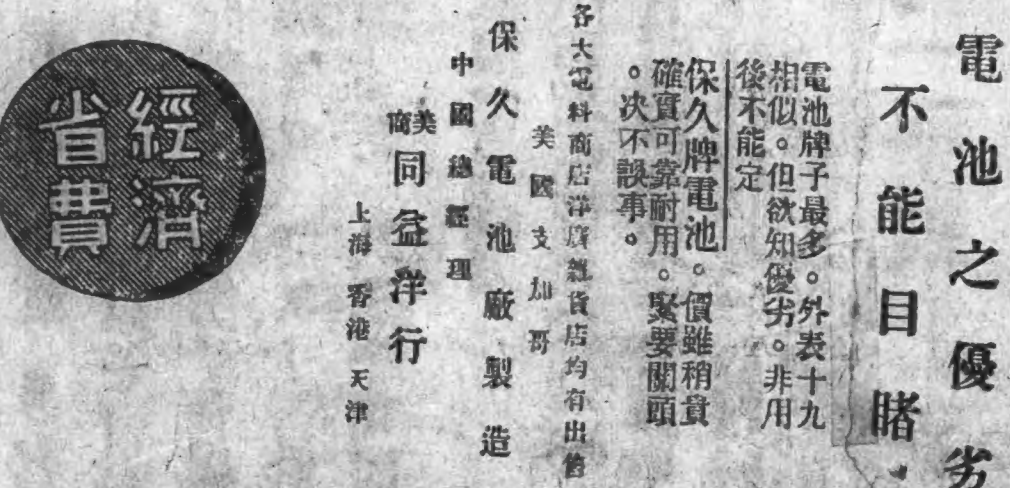 電池之優劣
不能目睹
電池牌子最多。外表十九
相似。但欲知優劣。非用
後不能定
保久牌電池。價雖稍貴
確實可靠耐用。緊要關頭
。决不誤事。
各大電料商店洋廣雜貨店均有出售
美國支加哥
保久電池廠製造
中國總經理
美商同益洋行
上海 香港 天津
經濟
省費